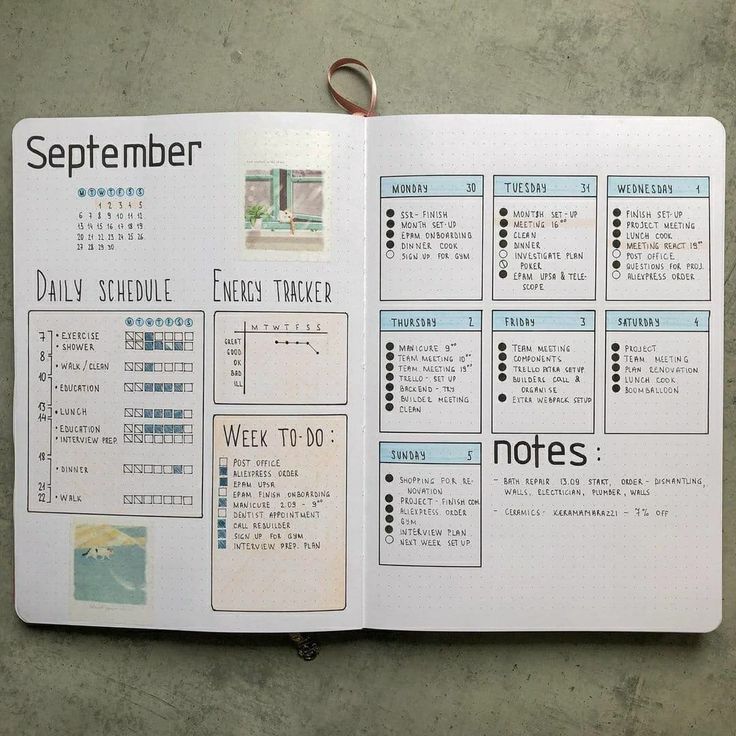 September
M T W T F S S
1 2 3 4 5
6 7 8 9 10 11 12
13 14 15 16 17 18 19
20 21 22 23 24 25 26
27 28 29 30
DAILY SCHEDULE
M T W T F S S
7
• EXERCISE
• SHOWER
8
• WALK / CLEAN
10
• EDUCATION
13
• LUNCH
14
• EDUCATION
• INTERVIEW PREP.
18
• DINNER
21
22
• WALK
ENERGY TRACKER
M T W T F S S
GREAT
GOOD
OK
BAD
ILL
WEEK TO-DO:
POST OFFICE
ALIEXPRESS ORDER
EPAM UPSA
EPAM FINISH ONBOARDING
MANICURE 2.09 - 9⁰⁰
DENTIST APPOINTMENT
CALL REBUILDER
SIGN UP FOR GYM
INTERVIEW PREP. PLAN
MONDAY 30
SSR - FINISH
MONTH SET-UP
EPAM ONBOARDING
DINNER COOK
SIGN UP FOR GYM.
TUESDAY 31
MONTSH SET-UP
MEETING 16⁰⁰
CLEAN
DINNER
INVESTIGATE PLAN
POKER
EPAM UPSA & TELE-
SCOPE
WEDNESDAY 1
FINISH SET-UP
PROJECT MEETING
LUNCH COOK
MEETING REACT 19⁰⁰
POST OFFICE
QUESTIONS FOR PROJ.
ALIEXPRESS ORDER
THURSDAY 2
MANICURE 9⁰⁰
TEAM MEETING 10⁰⁰
TEAM MEETING 19⁰⁰
TRELLO - SET UP
BACKEND - TRY
BUILDER MEETING
CLEAN
FRIDAY 3
TEAM MEETING
COMPONENTS
TRELLO EXTRA SETUP
BUILDERS CALL &
ORGANISE
EXTRA WEBPACK SETUP
SATURDAY 4
PROJECT
TEAM MEETING
PLAN RENOVATION
LUNCH COOK
BOOMBALLOON
SUNDAY 5
SHOPPING FOR RE-
NOVATION
PROJECT - FINISH COM.
ALIEXPRESS ORDER
GYM
INTERVIEW PLAN
NEXT WEEK SET UP
notes:
- BATH REPAIR 13.09 START, ORDER - DISMANTLING,
WALLS, ELECTRICIAN, PLUMBER, WALLS
- CERAMICS - KERAMAMARAZZI - 7% OFF